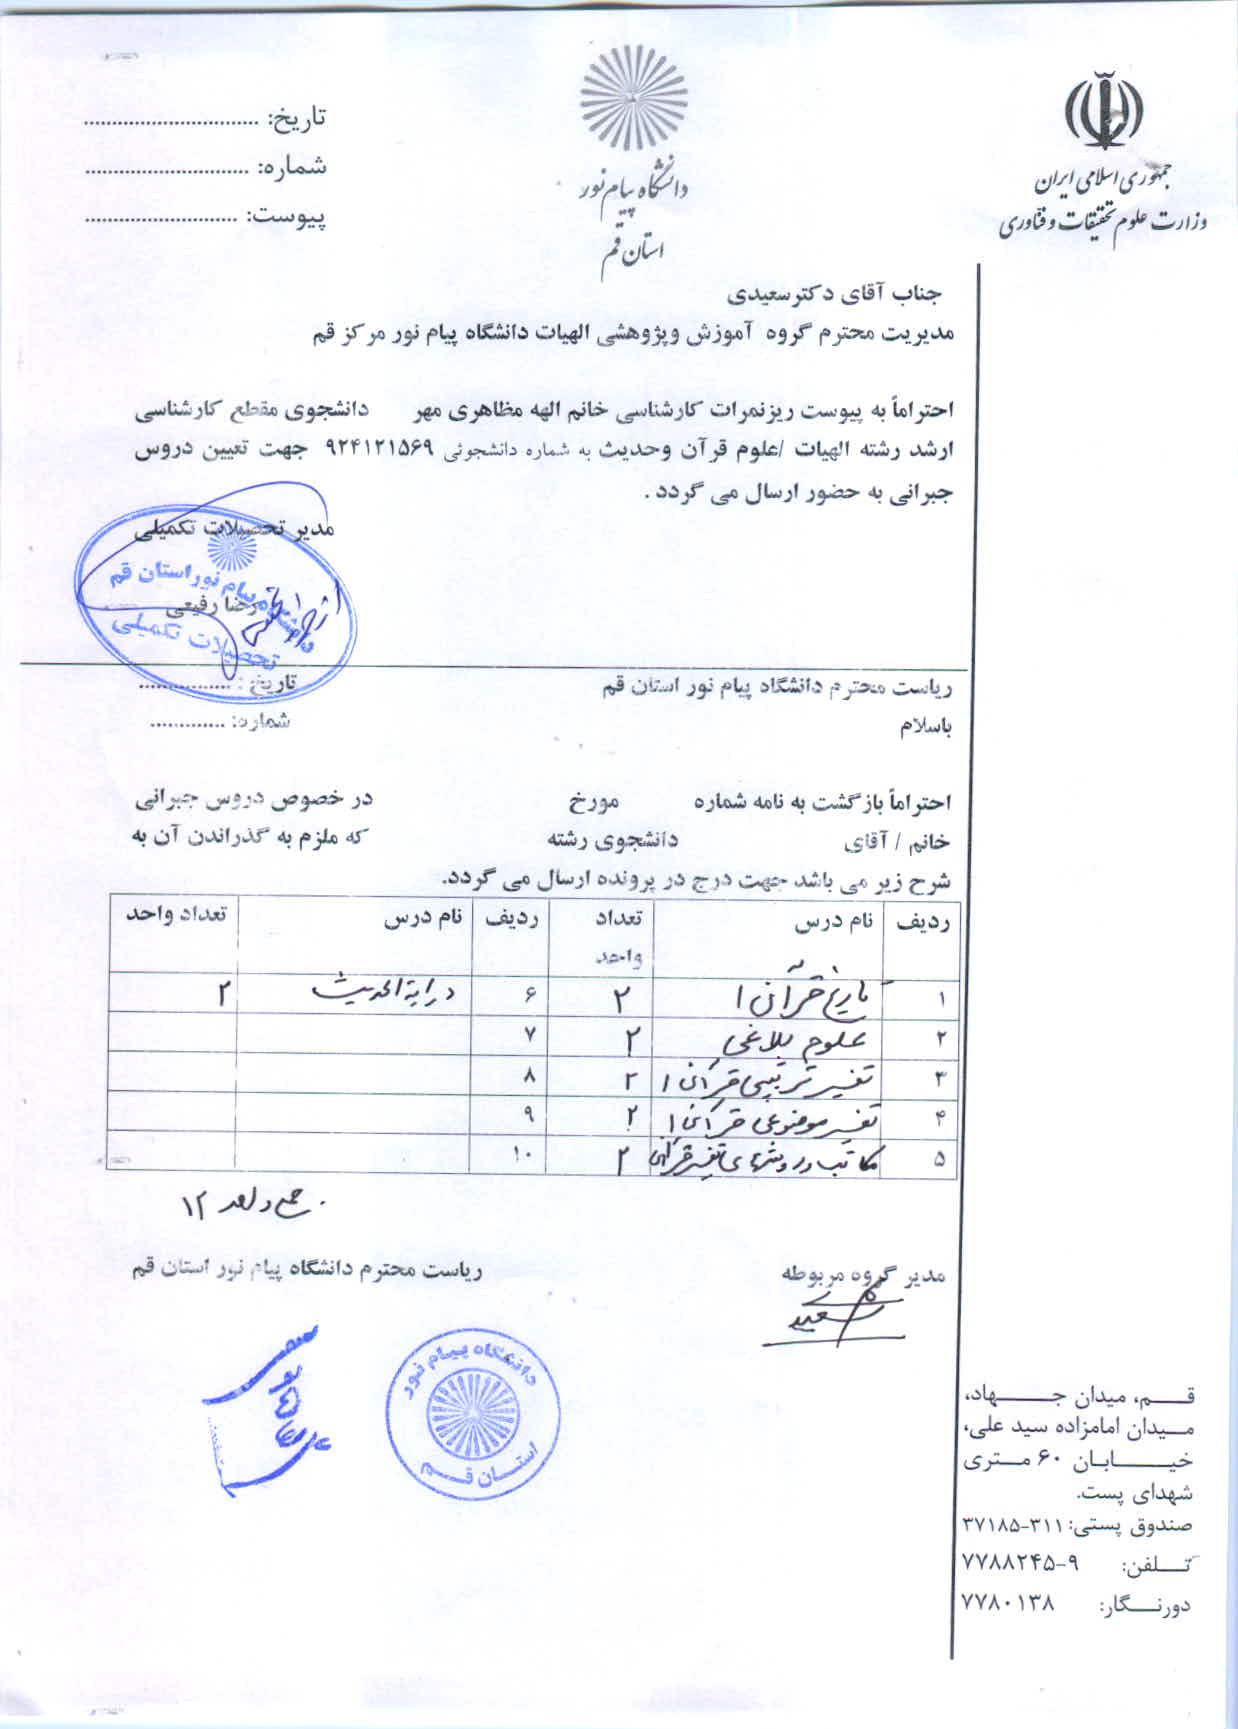 جمهوری اسلامی ایران
وزارت علوم تحقیقات و فناوری
دانشگاه پیام نور
استان قم
تاریخ: ..............................
شماره: ............................
پیوست: ..........................
جناب آقای دکترسعیدی
مدیریت محترم گروه آموزش وپژوهشی الهیات دانشگاه پیام نور مرکز قم
احتراماً به پیوست ریزنمرات کارشناسی خانم الهه مظاهری مهر دانشجوی مقطع کارشناسی
ارشد رشته الهیات /علوم قرآن وحدیث به شماره دانشجوئی ۹۲۴۱۲۱۵۶۹ جهت تعیین دروس
جبرانی به حضور ارسال می گردد .
مدیر تحصیلات تکمیلی
رضا رفیعی
دانشگاه پیام نور استان قم
تحصیلات تکمیلی
ریاست محترم دانشگاه پیام نور استان قم
تاریخ : ................
باسلام
شماره: .............
احتراماً بازگشت به نامه شماره مورخ در خصوص دروس جبرانی
خانم / آقای دانشجوی رشته که ملزم به گذراندن آن به
شرح زیر می باشد جهت درج در پرونده ارسال می گردد.
ردیف نام درس تعداد واحد ردیف نام درس تعداد واحد
۱ تاریخ قرآن ۱ ۲ ۶ درایة الحدیث ۲
۲ علوم بلاغی ۲ ۷
۳ تفسیر ترتیبی قرآن ۱ ۲ ۸
۴ تفسیر موضوعی قرآن ۱ ۲ ۹
۵ مکاتب و روشهای تفسیر قرآن ۲ ۱۰
جمع واحد ۱۲
مدیر گروه مربوطه
ریاست محترم دانشگاه پیام نور استان قم
دانشگاه پیام نور
استان قم
قم، میدان جهاد،
میدان امامزاده سید علی،
خیابان ۶۰ متری
شهدای پست.
صندوق پستی: ۳۱۱-۳۷۱۸۵
تلفن: ۹-۷۷۸۸۲۴۵
دورنگار: ۷۷۸۰۱۳۸